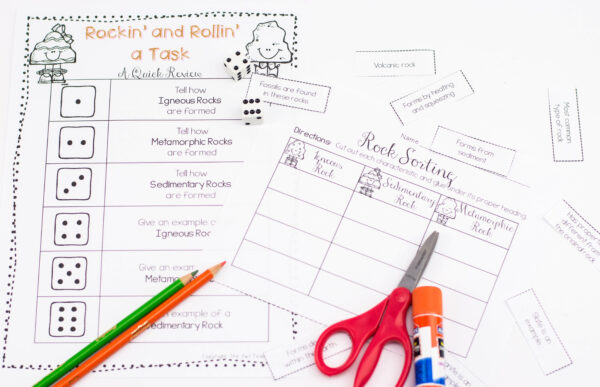 Rockin' and Rollin'
a Task
A Quick Review
Tell how
Igneous Rocks
are formed
Tell how
Metamorphic Rocks
are formed
Tell how
Sedimentary Rocks
are formed
Give an example
Igneous
Give an example
Give an example of a
Sedimentary Rock
Fossils are found
in these rocks
Volcanic rock
Forms by heating
and squeezing
Forms from
sediment
Most common
type of rock
Name
Rock Sorting
Directions: Cut out each characteristic and glue under its proper heading.
Igneous
Rock
Sedimentary
Rock
Metamorphic
Rock
different from
the original rock
Slate is an
example
Forms
within the earth